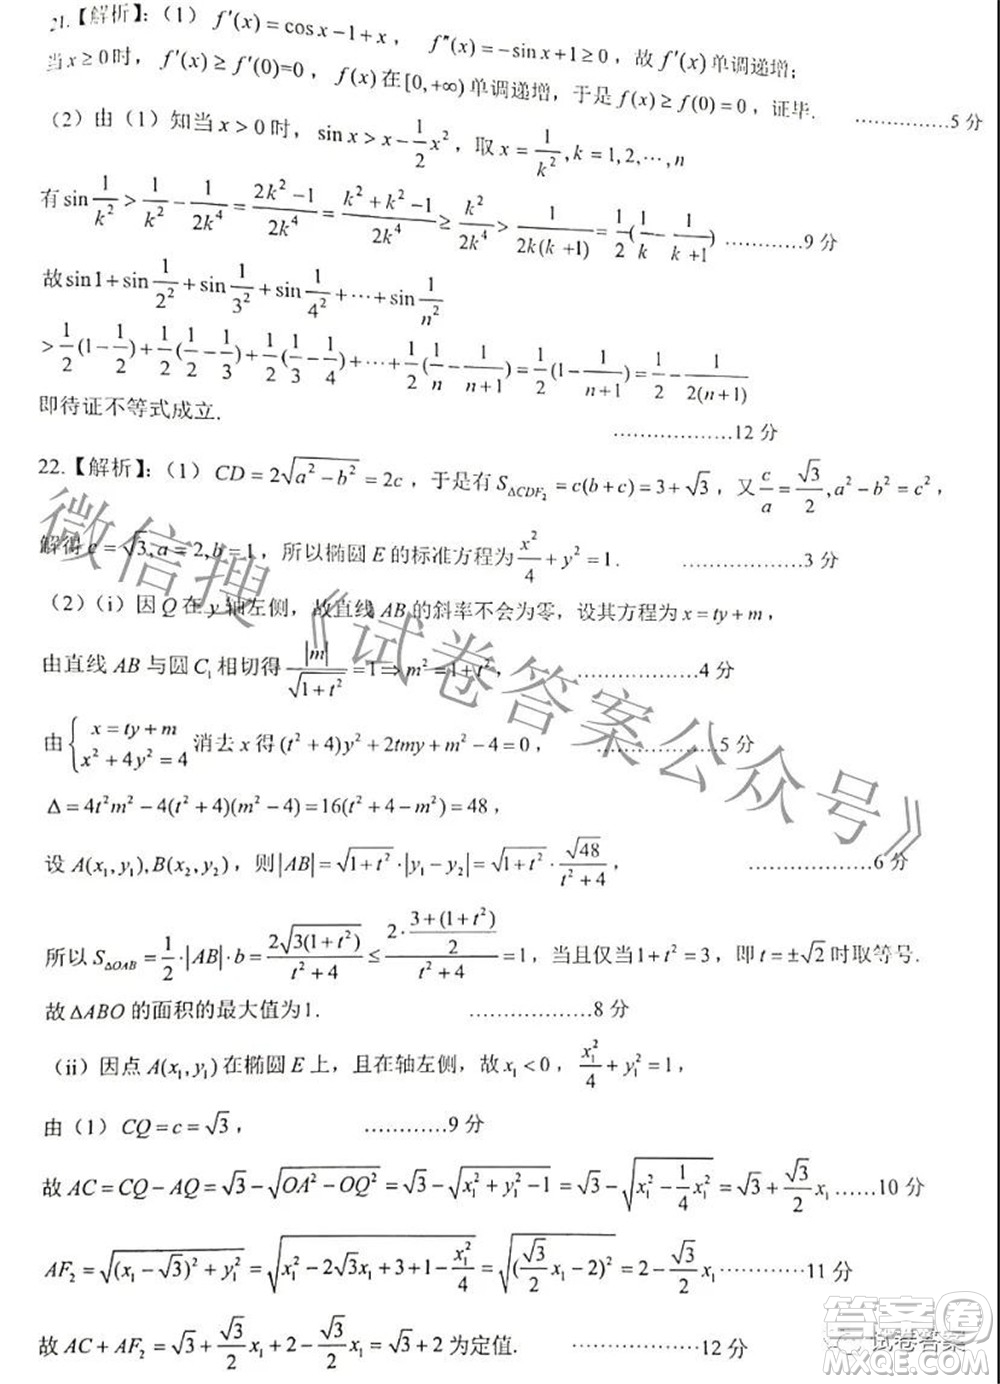 21.【解析】：（1） f′(x)=cos x−1+x， f″(x)=−sin x+1≥0，故 f′(x) 单调递增；
当 x≥0时， f′(x)≥f′(0)=0， f(x) 在 [0,+∞) 单调递增，于是 f(x)≥f(0)=0，证毕. ……………5 分
（2）由（1）知当 x>0 时，sin x>x−\frac{1}{2}x²，取 x=\frac{1}{k²},k=1,2,⋯,n
有 sin\frac{1}{k²}>\frac{1}{k²}−\frac{1}{2k⁴}=\frac{2k²−1}{2k⁴}=\frac{k²+k²−1}{2k⁴}≥\frac{k²}{2k⁴}>\frac{1}{2k(k+1)}=\frac{1}{2}(\frac{1}{k}−\frac{1}{k+1}) …………9 分
故 sin1+sin\frac{1}{2²}+sin\frac{1}{3²}+sin\frac{1}{4²}+⋯+sin\frac{1}{n²}
>\frac{1}{2}(1−\frac{1}{2})+\frac{1}{2}(\frac{1}{2}−\frac{1}{3})+\frac{1}{2}(\frac{1}{3}−\frac{1}{4})+⋯+\frac{1}{2}(\frac{1}{n}−\frac{1}{n+1})=\frac{1}{2}(1−\frac{1}{n+1})=\frac{1}{2}−\frac{1}{2(n+1)}
即待证不等式成立. ………………12 分
22.【解析】：（1） CD=2√(a²−b²)=2c，于是有 S_{ΔCDF₂}=c(b+c)=3+√3，又\frac{c}{a}=\frac{√3}{2},a²−b²=c²，
解得 c=√3,a=2,b=1，所以椭圆 E 的标准方程为\frac{x²}{4}+y²=1. ………………3 分
（2）（i）因 Q 在 y 轴左侧，故直线 AB 的斜率不会为零，设其方程为 x=ty+m，
由直线 AB 与圆 C₁ 相切得\frac{|m|}{√(1+t²)}=1⇒m²=1+t²， ………………4 分
由{x=ty+m x²+4y²=4 消去 x 得 (t²+4)y²+2tmy+m²−4=0， ………………5 分
Δ=4t²m²−4(t²+4)(m²−4)=16(t²+4−m²)=48，
设 A(x₁,y₁),B(x₂,y₂)，则|AB|=√(1+t²)·|y₁−y₂|=√(1+t²)·\frac{√48}{t²+4}， ………………6 分
所以 S_{ΔOAB}=\frac{1}{2}·|AB|·b=\frac{2√(3(1+t²))}{t²+4}≤\frac{2·\frac{3+(1+t²)}{2}}{t²+4}=1，当且仅当1+t²=3，即 t=±√2 时取等号.
故 ΔABO 的面积的最大值为1. ………………8 分
（ii）因点 A(x₁,y₁) 在椭圆 E 上，且在轴左侧，故 x₁<0，\frac{x₁²}{4}+y₁²=1，
由（1）CQ=c=√3， …………9 分
故 AC=CQ−AQ=√3−√(OA²−OQ²)=√3−√(x₁²+y₁²−1)=√3−√(x₁²−\frac{1}{4}x₁²)=√3+\frac{√3}{2}x₁ ……10 分
AF₂=√((x₁−√3)²+y₁²)=√(x₁²−2√3x₁+3+1−\frac{x₁²}{4})=√((\frac{√3}{2}x₁−2)²)=2−\frac{√3}{2}x₁ …………11 分
故 AC+AF₂=√3+\frac{√3}{2}x₁+2−\frac{√3}{2}x₁=√3+2 为定值. ………………12 分
微信搜《试卷答案公众号》
答案圈
试卷答案
MXQE.COM